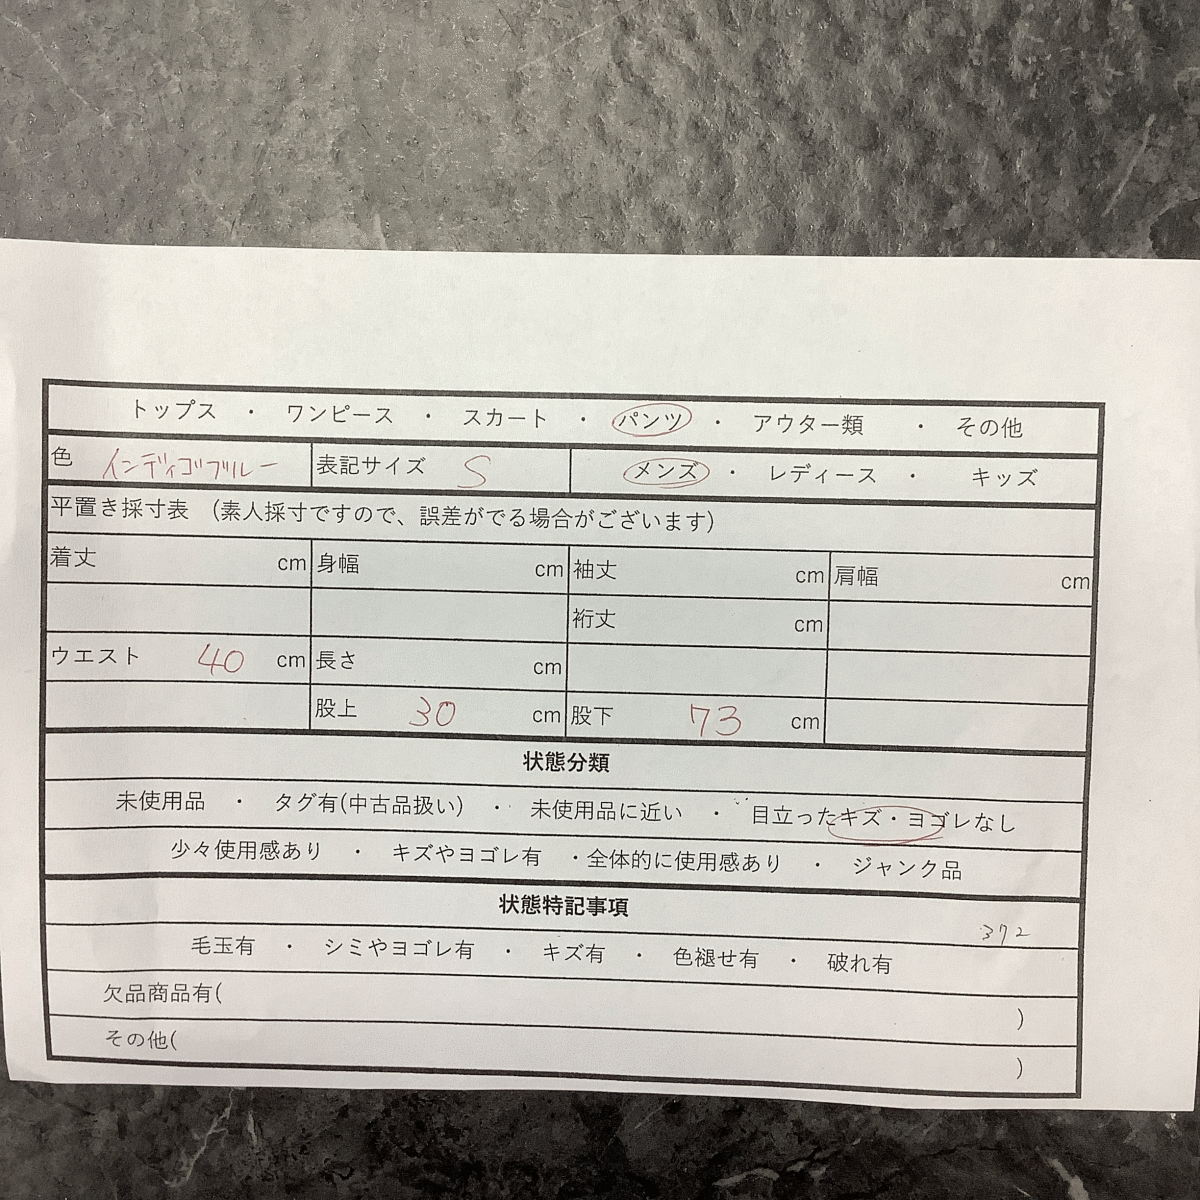 トップス ・ ワンピース ・ スカート ・ パンツ ・ アウター類 ・ その他
色 インディゴブルー 表記サイズ S メンズ ・ レディース ・ キッズ
平置き採寸表 (素人採寸ですので、誤差がでる場合がございます)
着丈 cm 身幅 cm 袖丈 cm 肩幅 cm
裄丈 cm
ウエスト 40 cm 長さ cm
股上 30 cm 股下 73 cm
状態分類
未使用品 ・ タグ有(中古品扱い) ・ 未使用品に近い ・ 目立ったキズ・ヨゴレなし
少々使用感あり ・ キズやヨゴレ有 ・全体的に使用感あり ・ ジャンク品
状態特記事項
372
毛玉有 ・ シミやヨゴレ有 ・ キズ有 ・ 色褪せ有 ・ 破れ有
欠品商品有( )
その他( )